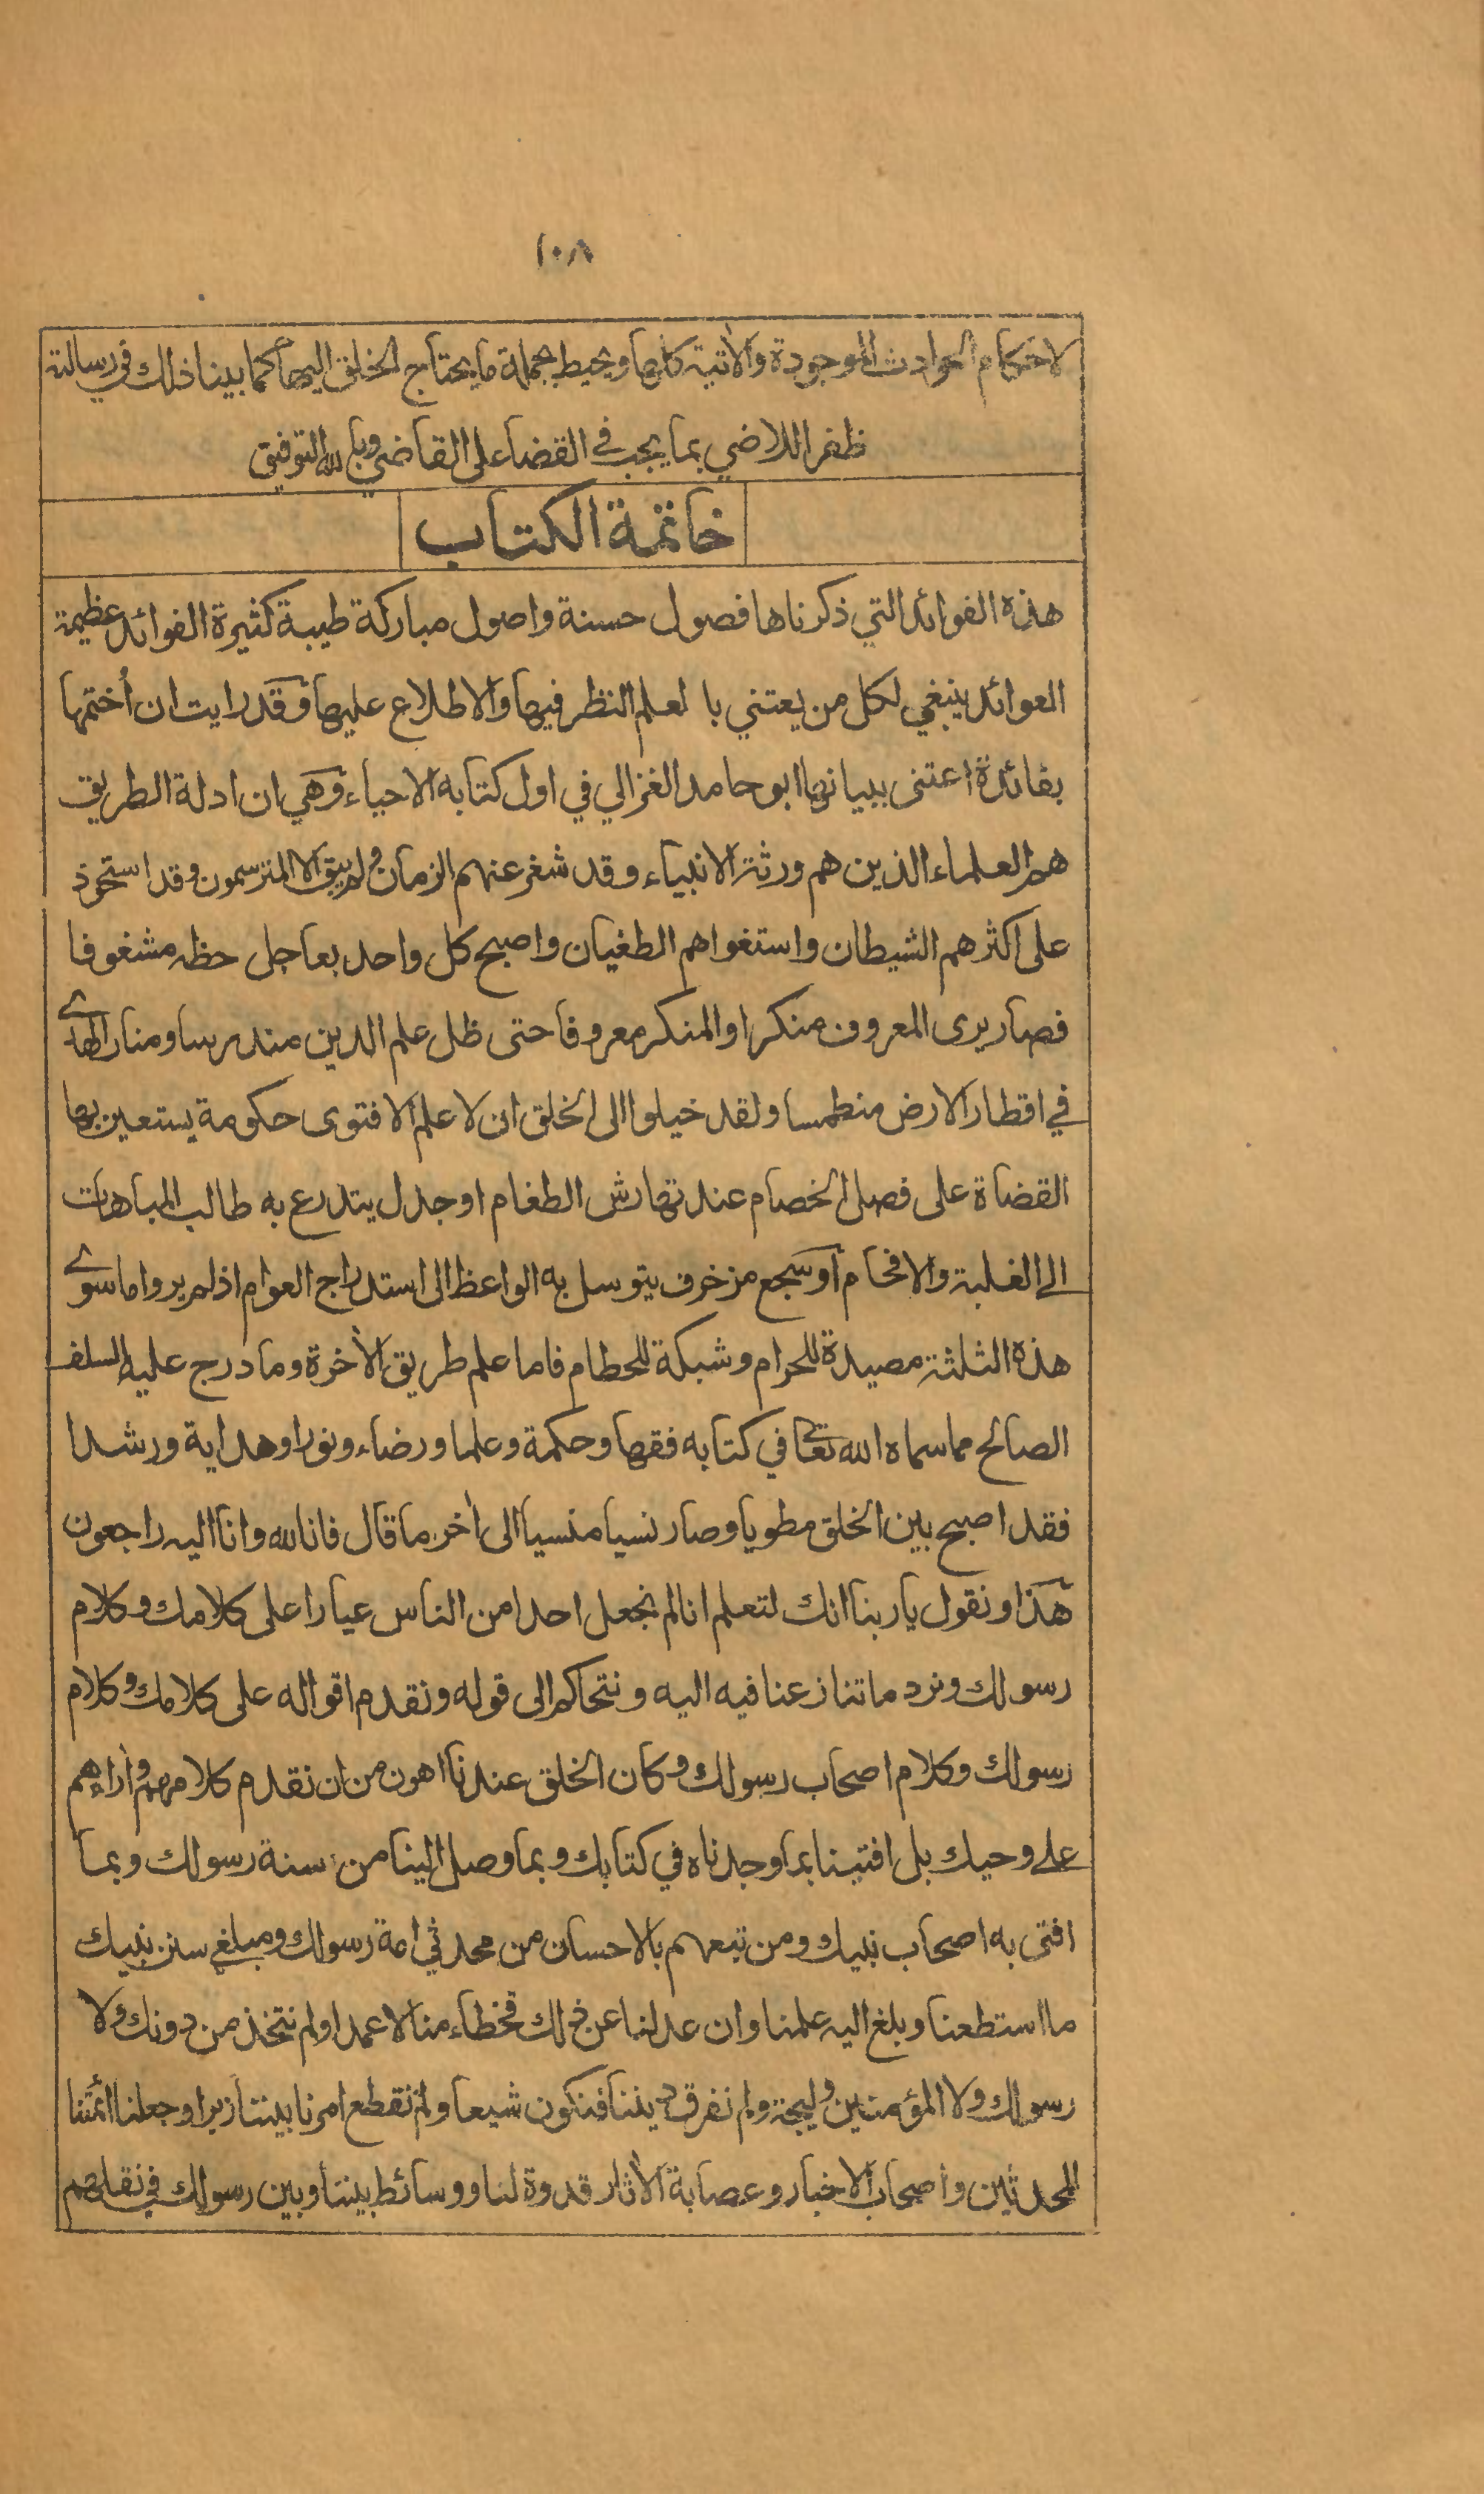 ١٠٨
لاحكام الحوادث الموجودة والآتية كلها ويحيط بجملة ما يحتاج الخلق اليها كما بينا ذلك في رسالة
ظفر اللاضي بما يجب في القضاء على القاضي وبالله التوفيق
خاتمة الكتاب
هذه الفوائد التي ذكرناها فصول حسنة واصول مباركة طيبة كثيرة الفوائد عظيمة
العوائد ينبغي لكل من يعتني با لعلم النظر فيها والاطلاع عليها وقد رايت ان أختمها
بفائدة اعتنى ببيانها ابو حامد الغزالي في اول كتابه الاحياء وهي ان ادلة الطريق
هم العلماء الذين هم ورثة الانبياء وقد شغر عنهم الزمان ولم يبق الا المترسمون وقد استحوذ
على اكثرهم الشيطان واستغواهم الطغيان واصبح كل واحد بعاجل حظه مشغوفا
فصار يرى المعروف منكرا والمنكر معروفا حتى ظل علم الدين مندرسا ومنار الهدے
في اقطار الارض منطمسا ولقد خيلوا الى الخلق ان لا علم الا فتوى حكومة يستعين بها
القضاة على فصل الخصام عند تهارش الطغام او جدل يتدرع به طالب المباهات
الے الغلبة والافحام او سجع مزخرف يتوسل به الواعظ الى استدراج العوام اذ لم يروا ما سوے
هذه الثلثة مصيدة للحرام وشبكة للحطام فاما علم طريق الآخرة وما درج عليه السلف
الصالح مما سماه الله تعالى في كتابه فقها وحكمة وعلما ورضاء ونورا وهداية ورشدا
فقد اصبح بين الخلق مطويا وصار نسيا منسيا الى آخر ما قال فانا لله وانا اليه راجعون
هذا ونقول يا ربنا انك لتعلم انا لم نجعل احدا من الناس عيارا على كلامك وكلام
رسولك ونرد ما تنازعنا فيه اليه ونتحاكم الى قوله ونقدم اقواله على كلامك وكلام
رسولك وكلام اصحاب رسولك وكان الخلق عندنا اهون من ان نقدم كلامهم وآراءهم
علے وحيك بل افتينا بما وجدناه في كتابك وبما وصل الينا من سنة رسولك وبما
افتى به اصحاب نبيك ومن تبعهم بالاحسان من محدثي امة رسولك ومبلغي سنن نبيك
ما استطعنا وبلغ اليه علمنا وان عدلنا عن ذلك فخطاء منا لا عمدا ولم نتخذ من دونك ولا
رسولك ولا المؤمنين وليجة ولم نفرق ديننا فنكون شيعا ولم نقطع امرنا بيننا زبرا وجعلنا ائمتنا
المحدثين واصحاب الاخبار وعصابة الآثار قدوة لنا ووسائط بيننا وبين رسولك في نقلهم